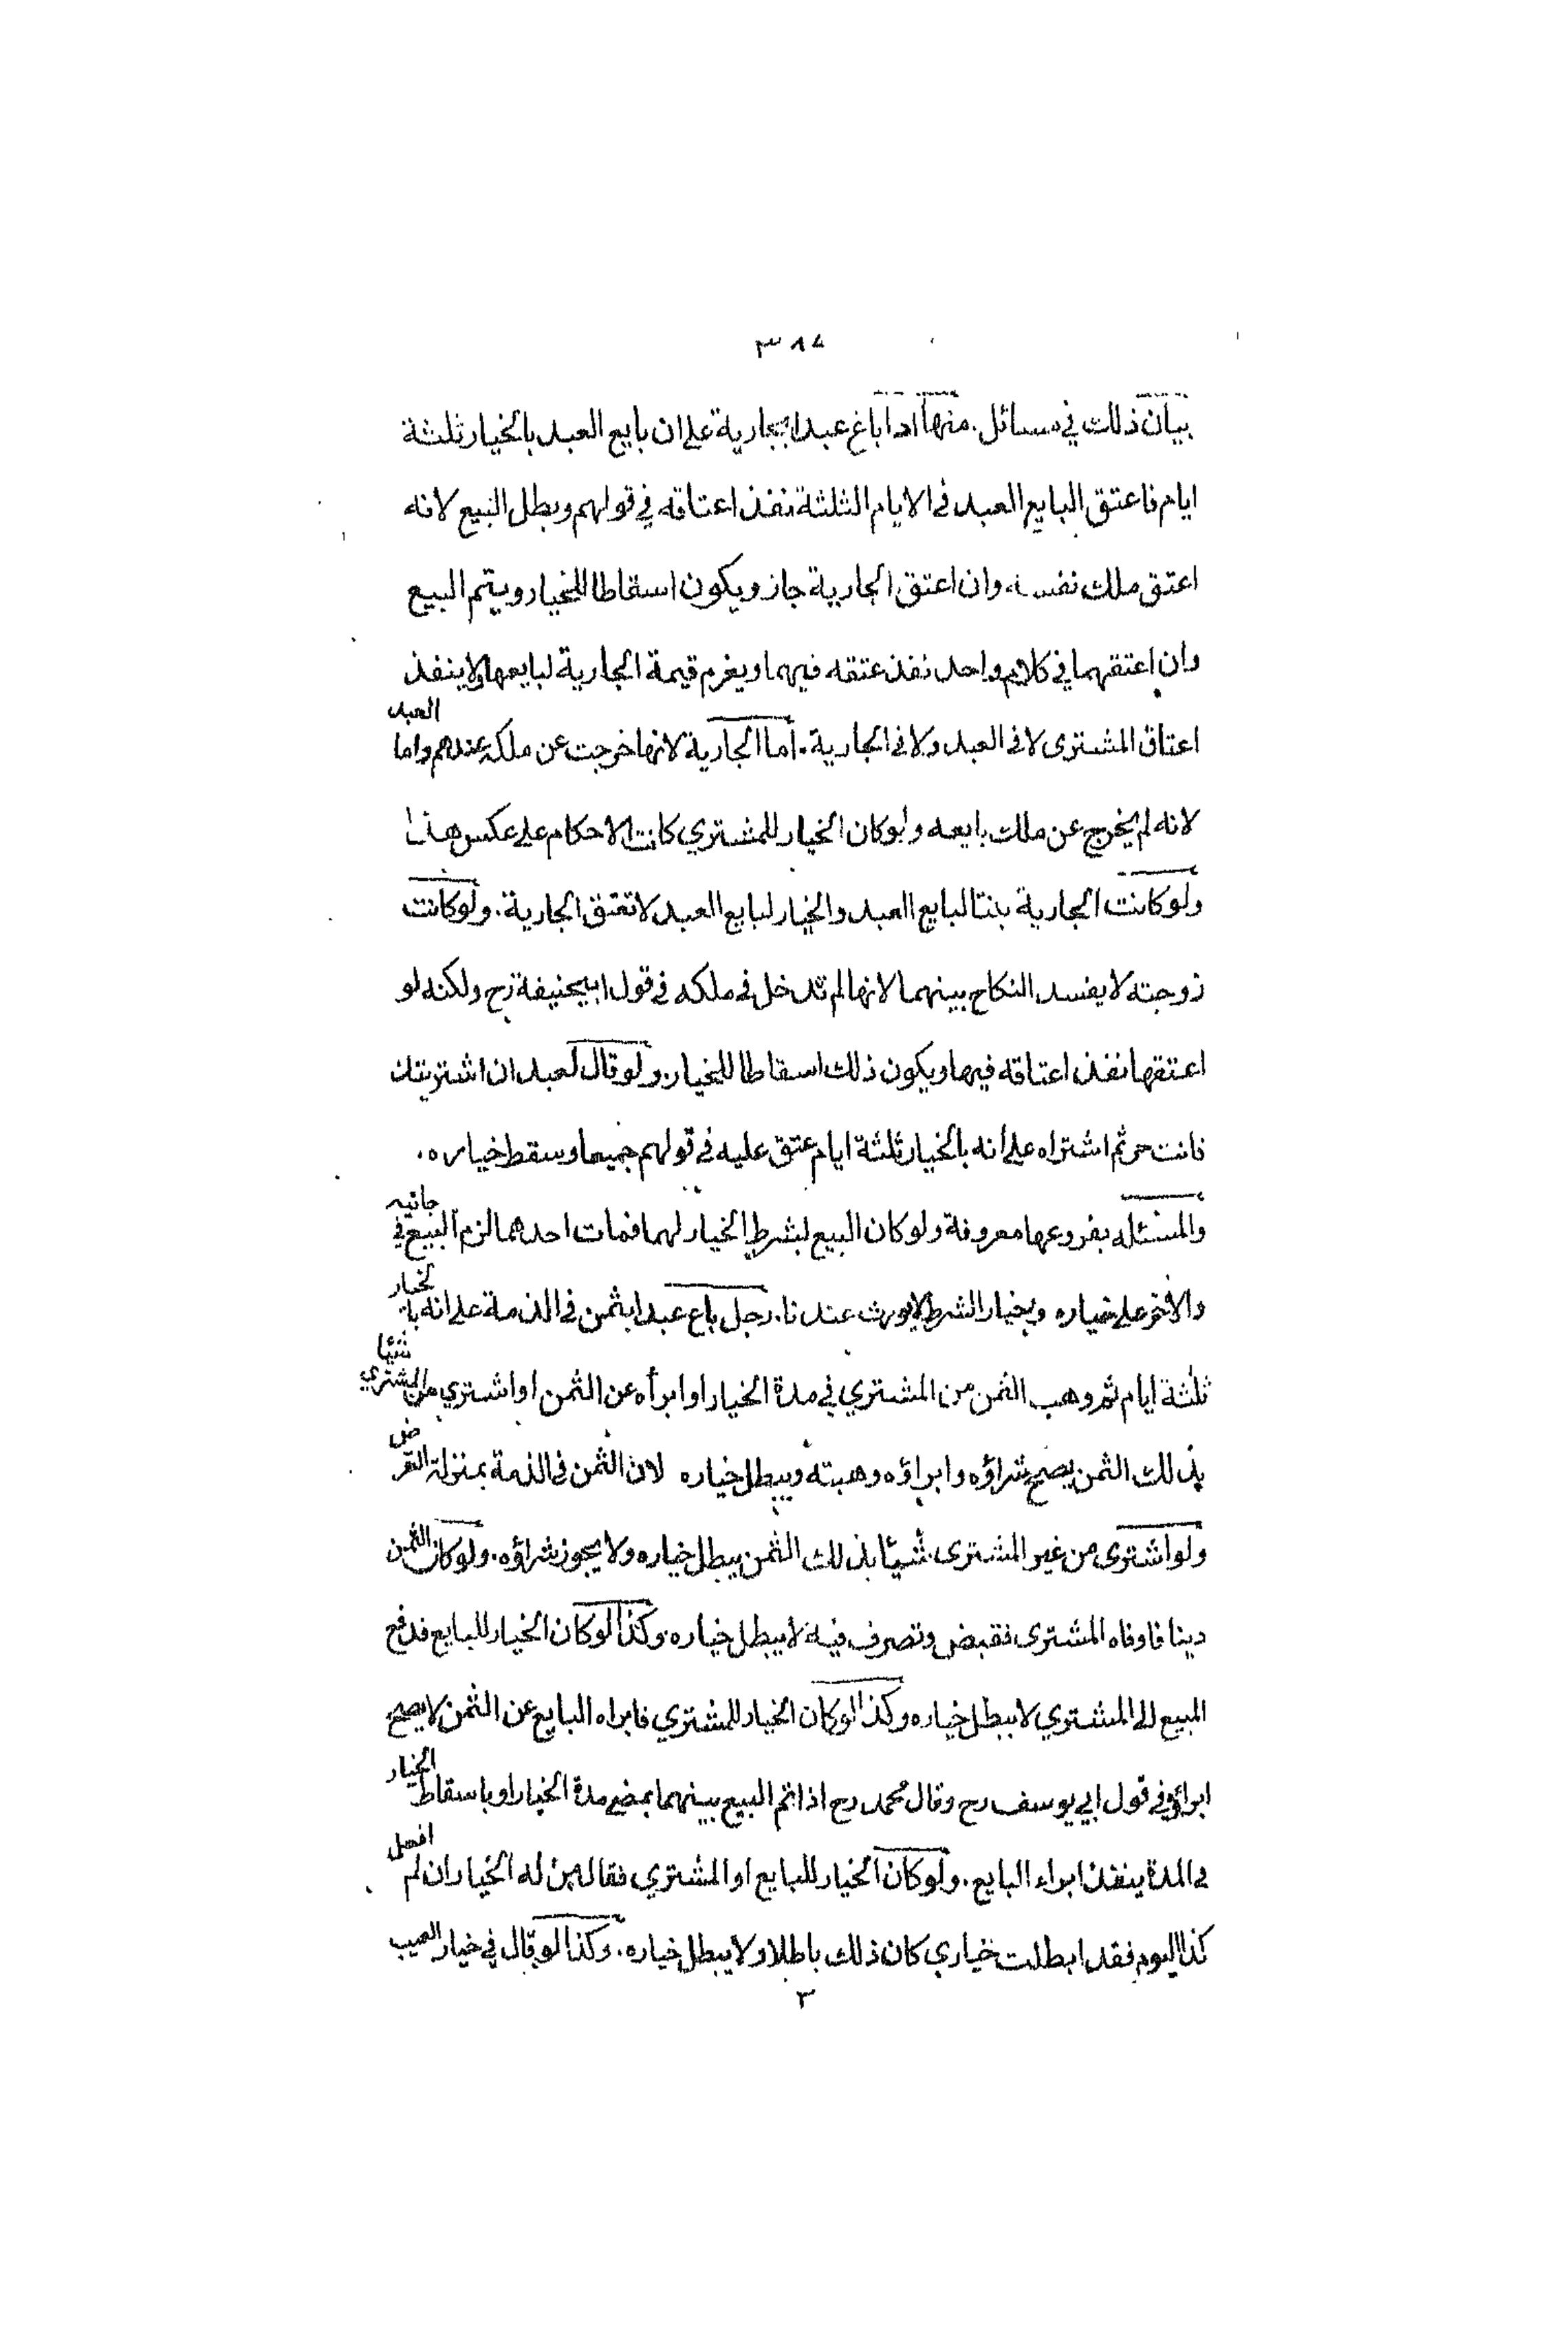 ٣٨٤
بيان ذلك في مسائل. منها اذا باع عبدا بجارية على ان بايع العبد بالخيار ثلثة
ايام فاعتق البايع العبد في الايام الثلثة نفذ اعتاقه في قولهم وبطل البيع لانه
اعتق ملك نفسه وان اعتق الجارية جاز ويكون اسقاطا للخيار ويتم البيع
وان اعتقهما في كلام واحد نفذ عتقه فيهما ويغرم قيمة الجارية لبايعها ولا ينفذ
اعتاق المشترى لا في العبد ولا في الجارية. اما الجارية لانها خرجت عن ملكه عندهم واما العبد
لانه لم يخرج عن ملك بايعه ولو كان الخيار للمشتري كانت الاحكام على عكس هذا
ولو كانت الجارية بنتا لبايع العبد والخيار لبايع العبد لا تعتق الجارية. ولو كانت
زوجته لا يفسد النكاح بينهما لانها لم تدخل في ملكه في قول ابيحنيفة رح ولكنه لو
اعتقها نفذ اعتاقه فيها ويكون ذلك اسقاطا للخيار. ولو قال لعبد ان اشتريتك
فانت حر ثم اشتراه على انه بالخيار ثلثة ايام عتق عليه في قولهم جميعا وسقط خياره.
والمسئله بفروعها معروفة ولو كان البيع بشرط الخيار لهما فمات احدهما لزم البيع في جانبه
والاخر على خياره وخيار الشرط لا يورث عندنا. رجل باع عبدا بثمن في الذمة على انه بالخيار
ثلثة ايام ثم وهب الثمن من المشتري في مدة الخيار او ابرأه عن الثمن او اشتري من المشتري شيئا
بذلك الثمن يصح شراؤه وابراؤه وهبته ويبطل خياره لان الثمن في الذمة بمنزلة القرض
ولو اشترى من غير المشترى شيئا بذلك الثمن يبطل خياره ولا يجوز شراؤه. ولو كان الثمن
دينا فاوفاه المشترى فقبض وتصرف فيه لا يبطل خياره. وكذا لو كان الخيار للبايع فدفع
المبيع الى المشتري لا يبطل خياره وكذا لو كان الخيار للمشتري فابراه البايع عن الثمن لا يصح
ابراؤه في قول ابي يوسف رح وقال محمد رح اذا تم البيع بينهما بمضي مدة الخيار او باسقاط الخيار
في المدة ينفذ ابراء البايع. ولو كان الخيار للبايع او المشتري فقال من له الخيار ان لم افعل
كذا اليوم فقد ابطلت خياري كان ذلك باطلا ولا يبطل خياره. وكذا لو قال في خيار العيب
٣